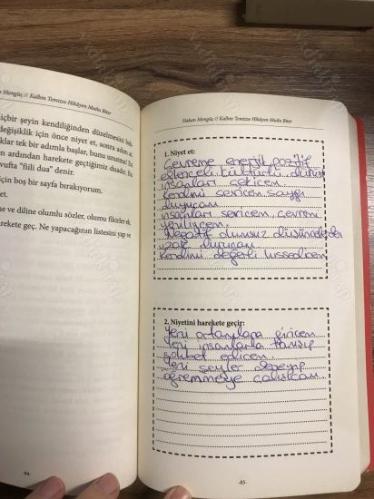 Hakan Mengüç // Kalbin Temizse Hikâyen Mutlu Biter
içbir şeyin kendiliğinden düzelmesini bek-
değişiklik için önce niyet et, sonra adım at.
klar tek bir adımla başlar, bunu unutma!
n ardından harekete geçtiğimiz duadır.
vufta "fiili dua" denir.
için boş bir sayfa bırakıyorum.
et.
ne ve diline olumlu sözler, olumu fikirler ek.
rekete geç. Ne yapacağının listesini yap ve
44
Hakan Mengüç // Kalbin Temizse Hikâyen Mutlu Biter
1. Niyet et:
Çevreme enerjik, pozitif
eğlenceli, kültürlü, dürüst
insanları çekicem.
Kendimi sevicem, saygı
duyucam
insanları sevicem, çevremi
yeniliycem.
Negatif olumsuz düşüncelerden
uzak durucam
Kendimi değerli hissedicem
2. Niyetini harekete geçir:
Yeni ortamlara giricem
Yeni insanlarla tanışıp
sohbet edicem.
Yeni şeyler deneyip
öğrenmeye çalışıcam
45